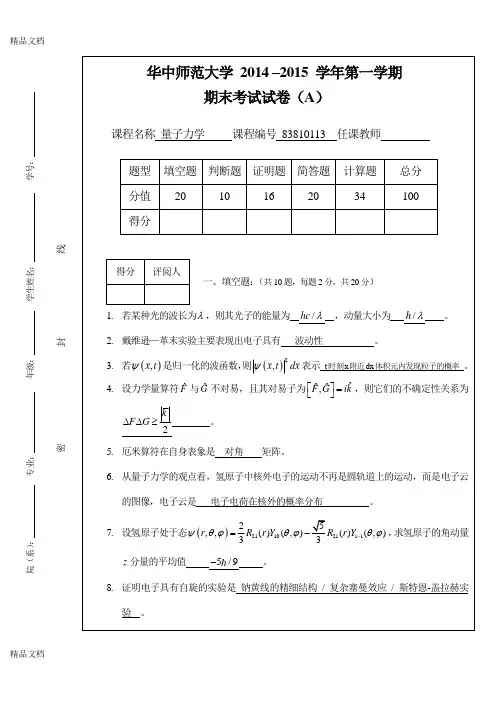 精品文档
华中师范大学 2014 –2015 学年第一学期
期末考试试卷（A）
课程名称 量子力学 课程编号 83810113 任课教师
题型 填空题 判断题 证明题 简答题 计算题 总分
分值 20 10 16 20 34 100
得分
得分 评阅人
一、填空题:（共10题，每题2分，共20分）
1. 若某种光的波长为λ，则其光子的能量为 hc/λ ，动量大小为 h/λ 。
2. 戴维逊—革末实验主要表现出电子具有 波动性 。
3. 若ψ(x,t)是归一化的波函数,则|ψ(x,t)|²dx表示 t时刻x附近dx体积元内发现粒子的概率 。
4. 设力学量算符F̂与Ĝ不对易，且其对易子为[F̂,Ĝ]=ik̂，则它们的不确定性关系为
ΔFΔG≥k̄/2 。
5. 厄米算符在自身表象是 对角 矩阵。
6. 从量子力学的观点看，氢原子中核外电子的运动不再是圆轨道上的运动，而是电子云
的图像，电子云是 电子电荷在核外的概率分布 。
7. 设氢原子处于态ψ(r,θ,φ)=2/3R₂₁(r)Y₁₀(θ,φ)−√5/3R₂₁(r)Y₁₋₁(θ,φ),求氢原子的角动量
z分量的平均值 −5ħ/9 。
8. 证明电子具有自旋的实验是 钠黄线的精细结构 / 复杂塞曼效应 / 斯特恩-盖拉赫实
验 。
学号:
学生姓名:
年级:
专业:
院（系）:
线
封
密
精品文档